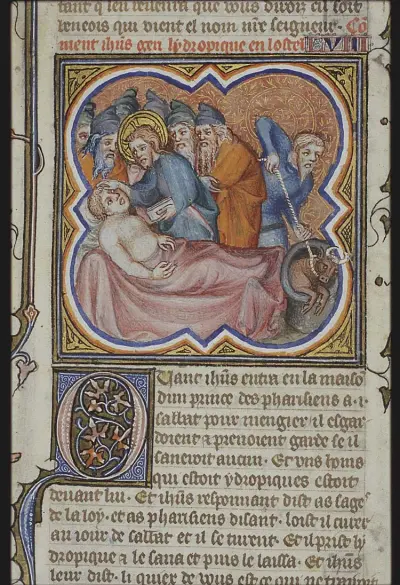 tant q leu
que vous diroiz cil soit
beneois qui vient el nom nr̄e seigneur. Co
ment ih̄us gari lydropique en lostel
LVIII
Quant ih̄us entra en la maiso
dun prince des pharisiens a .i.
sabbat pour mengier / il esgar
doient ⁊ prenoient garde se il
saneroit aucun. Et vns homs
qui estoit ydropiques estoit
deuant lui. Et ih̄us responnant dist as sages
de la loy. et as pharisiens disant. loist il curer
au iour de sabbat et il se turent. Et il prist ly
dropique ⁊ le sana et puis le laissa. Et ih̄us
leur dist. li quiex de vous est ce qui